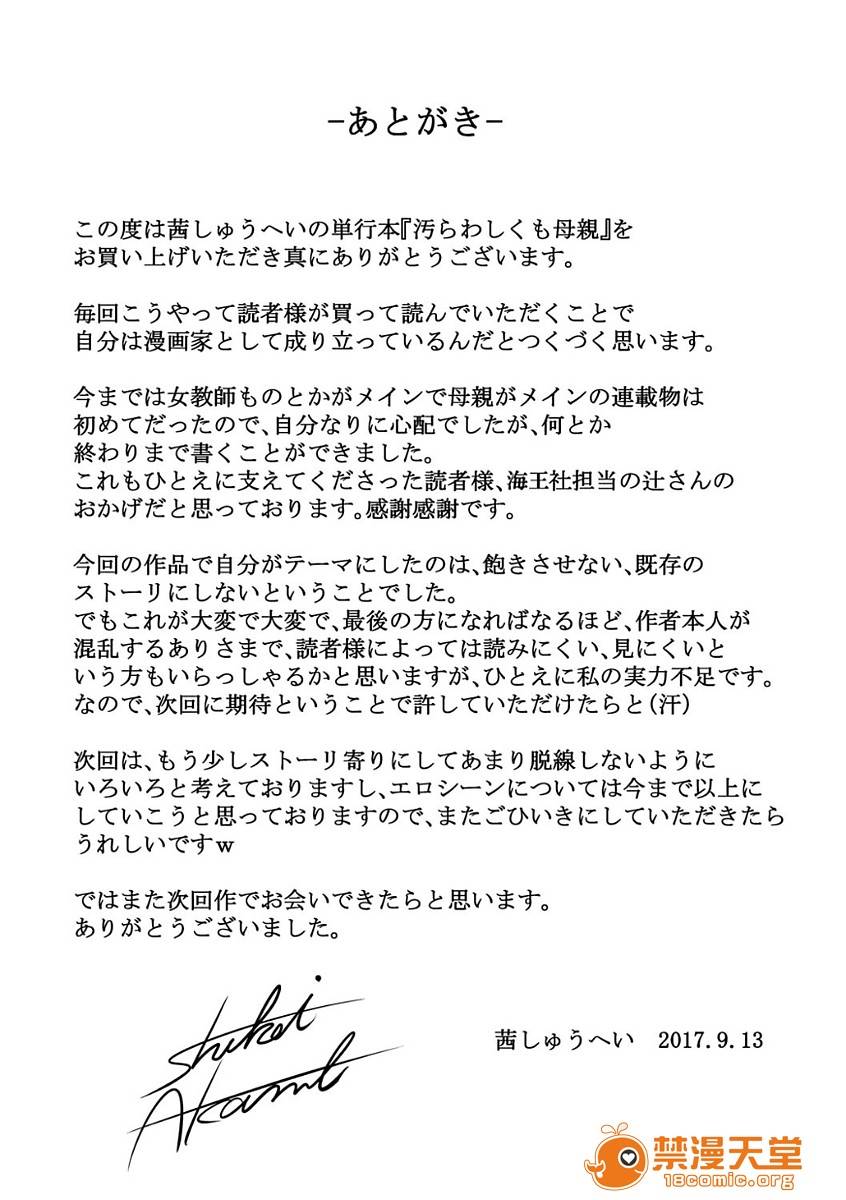 -あとがき-
この度は茜しゅうへいの単行本『汚らわしくも母親』を
お買い上げいただき真にありがとうございます。
毎回こうやって読者様が買って読んでいただくことで
自分は漫画家として成り立っているんだとつくづく思います。
今までは女教師ものとかがメインで母親がメインの連載物は
初めてだったので、自分なりに心配でしたが、何とか
終わりまで書くことができました。
これもひとえに支えてくださった読者様、海王社担当の辻さんの
おかげだと思っております。感謝感謝です。
今回の作品で自分がテーマにしたのは、飽きさせない、既存の
ストーリにしないということでした。
でもこれが大変で大変で、最後の方になればなるほど、作者本人が
混乱するありさまで、読者様によっては読みにくい、見にくいと
いう方もいらっしゃるかと思いますが、ひとえに私の実力不足です。
なので、次回に期待ということで許していただけたらと(汗)
次回は、もう少しストーリ寄りにしてあまり脱線しないように
いろいろと考えておりますし、エロシーンについては今まで以上に
していこうと思っておりますので、またごひいきにしていただきたら
うれしいですｗ
ではまた次回作でお会いできたらと思います。
ありがとうございました。
茜しゅうへい　2017.9.13
禁漫天堂
18comic.org